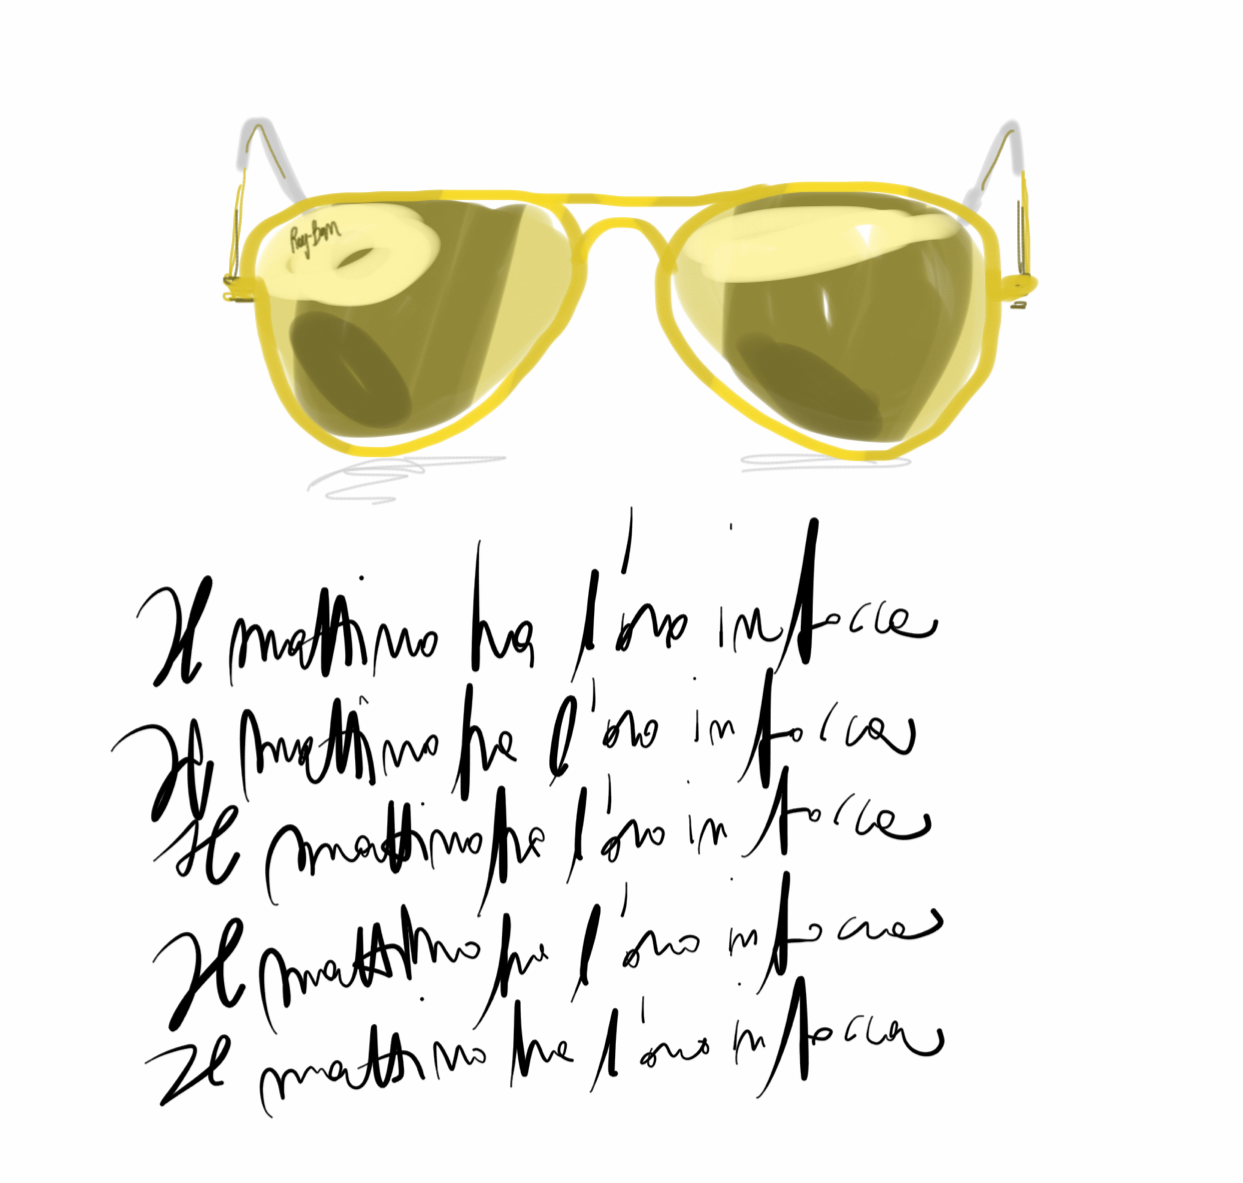 Ray-Ban
Il mattino ha l'oro in bocca
Il mattino ha l'oro in bocca
Il mattino ha l'oro in bocca
Il mattino ha l'oro in bocca
Il mattino ha l'oro in bocca